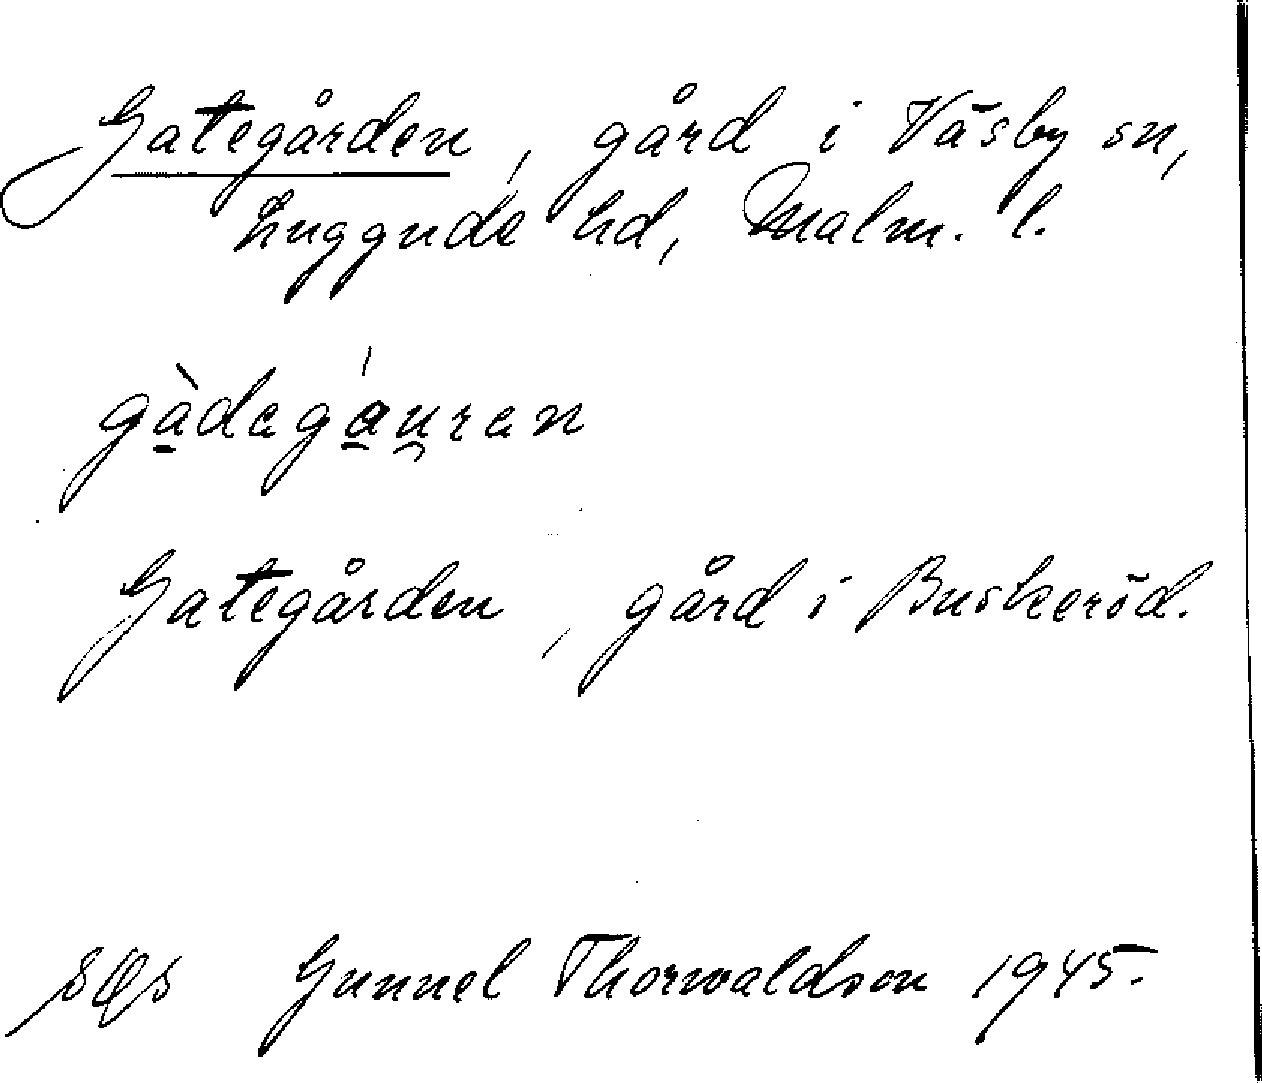 Gategården, gård i Väsby sn,
Luggude hd, Malm. l.
gàdagáu̯ran
Gategården, gård i Buskeröd.
Gunnel Thorwaldson 1945.